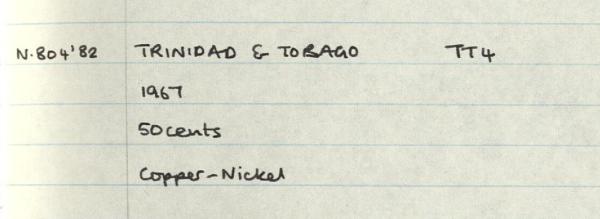 N.804'82 TRINIDAD & TOBAGO TT4
1967
50 cents
Copper-Nickel